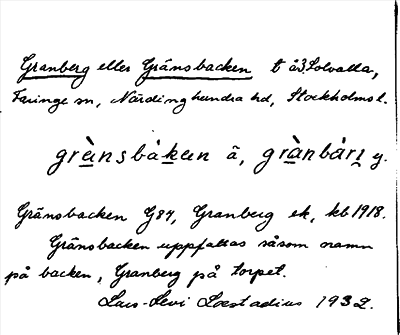 Granberg eller Gränsbacken t å3 Solvalla,
Faringe sn, Närdinghundra hd, Stockholms l.
grànsbàkan ã, grànbàrı y.
Gränsbacken G84, Granberg ek, kb 1918.
Gränsbacken uppfattas såsom namn
på backen, Granberg på torpet.
Lars-Levi Læstadius 1932.